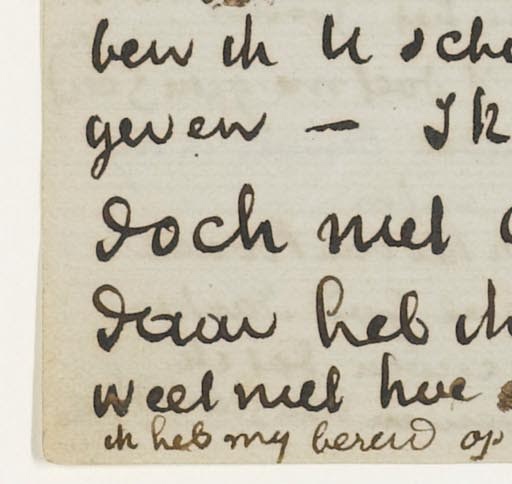 ben ik U scho
geven — Ik
Doch niet
Daar heb ik
weet niet hoe
ik heb my bereid op